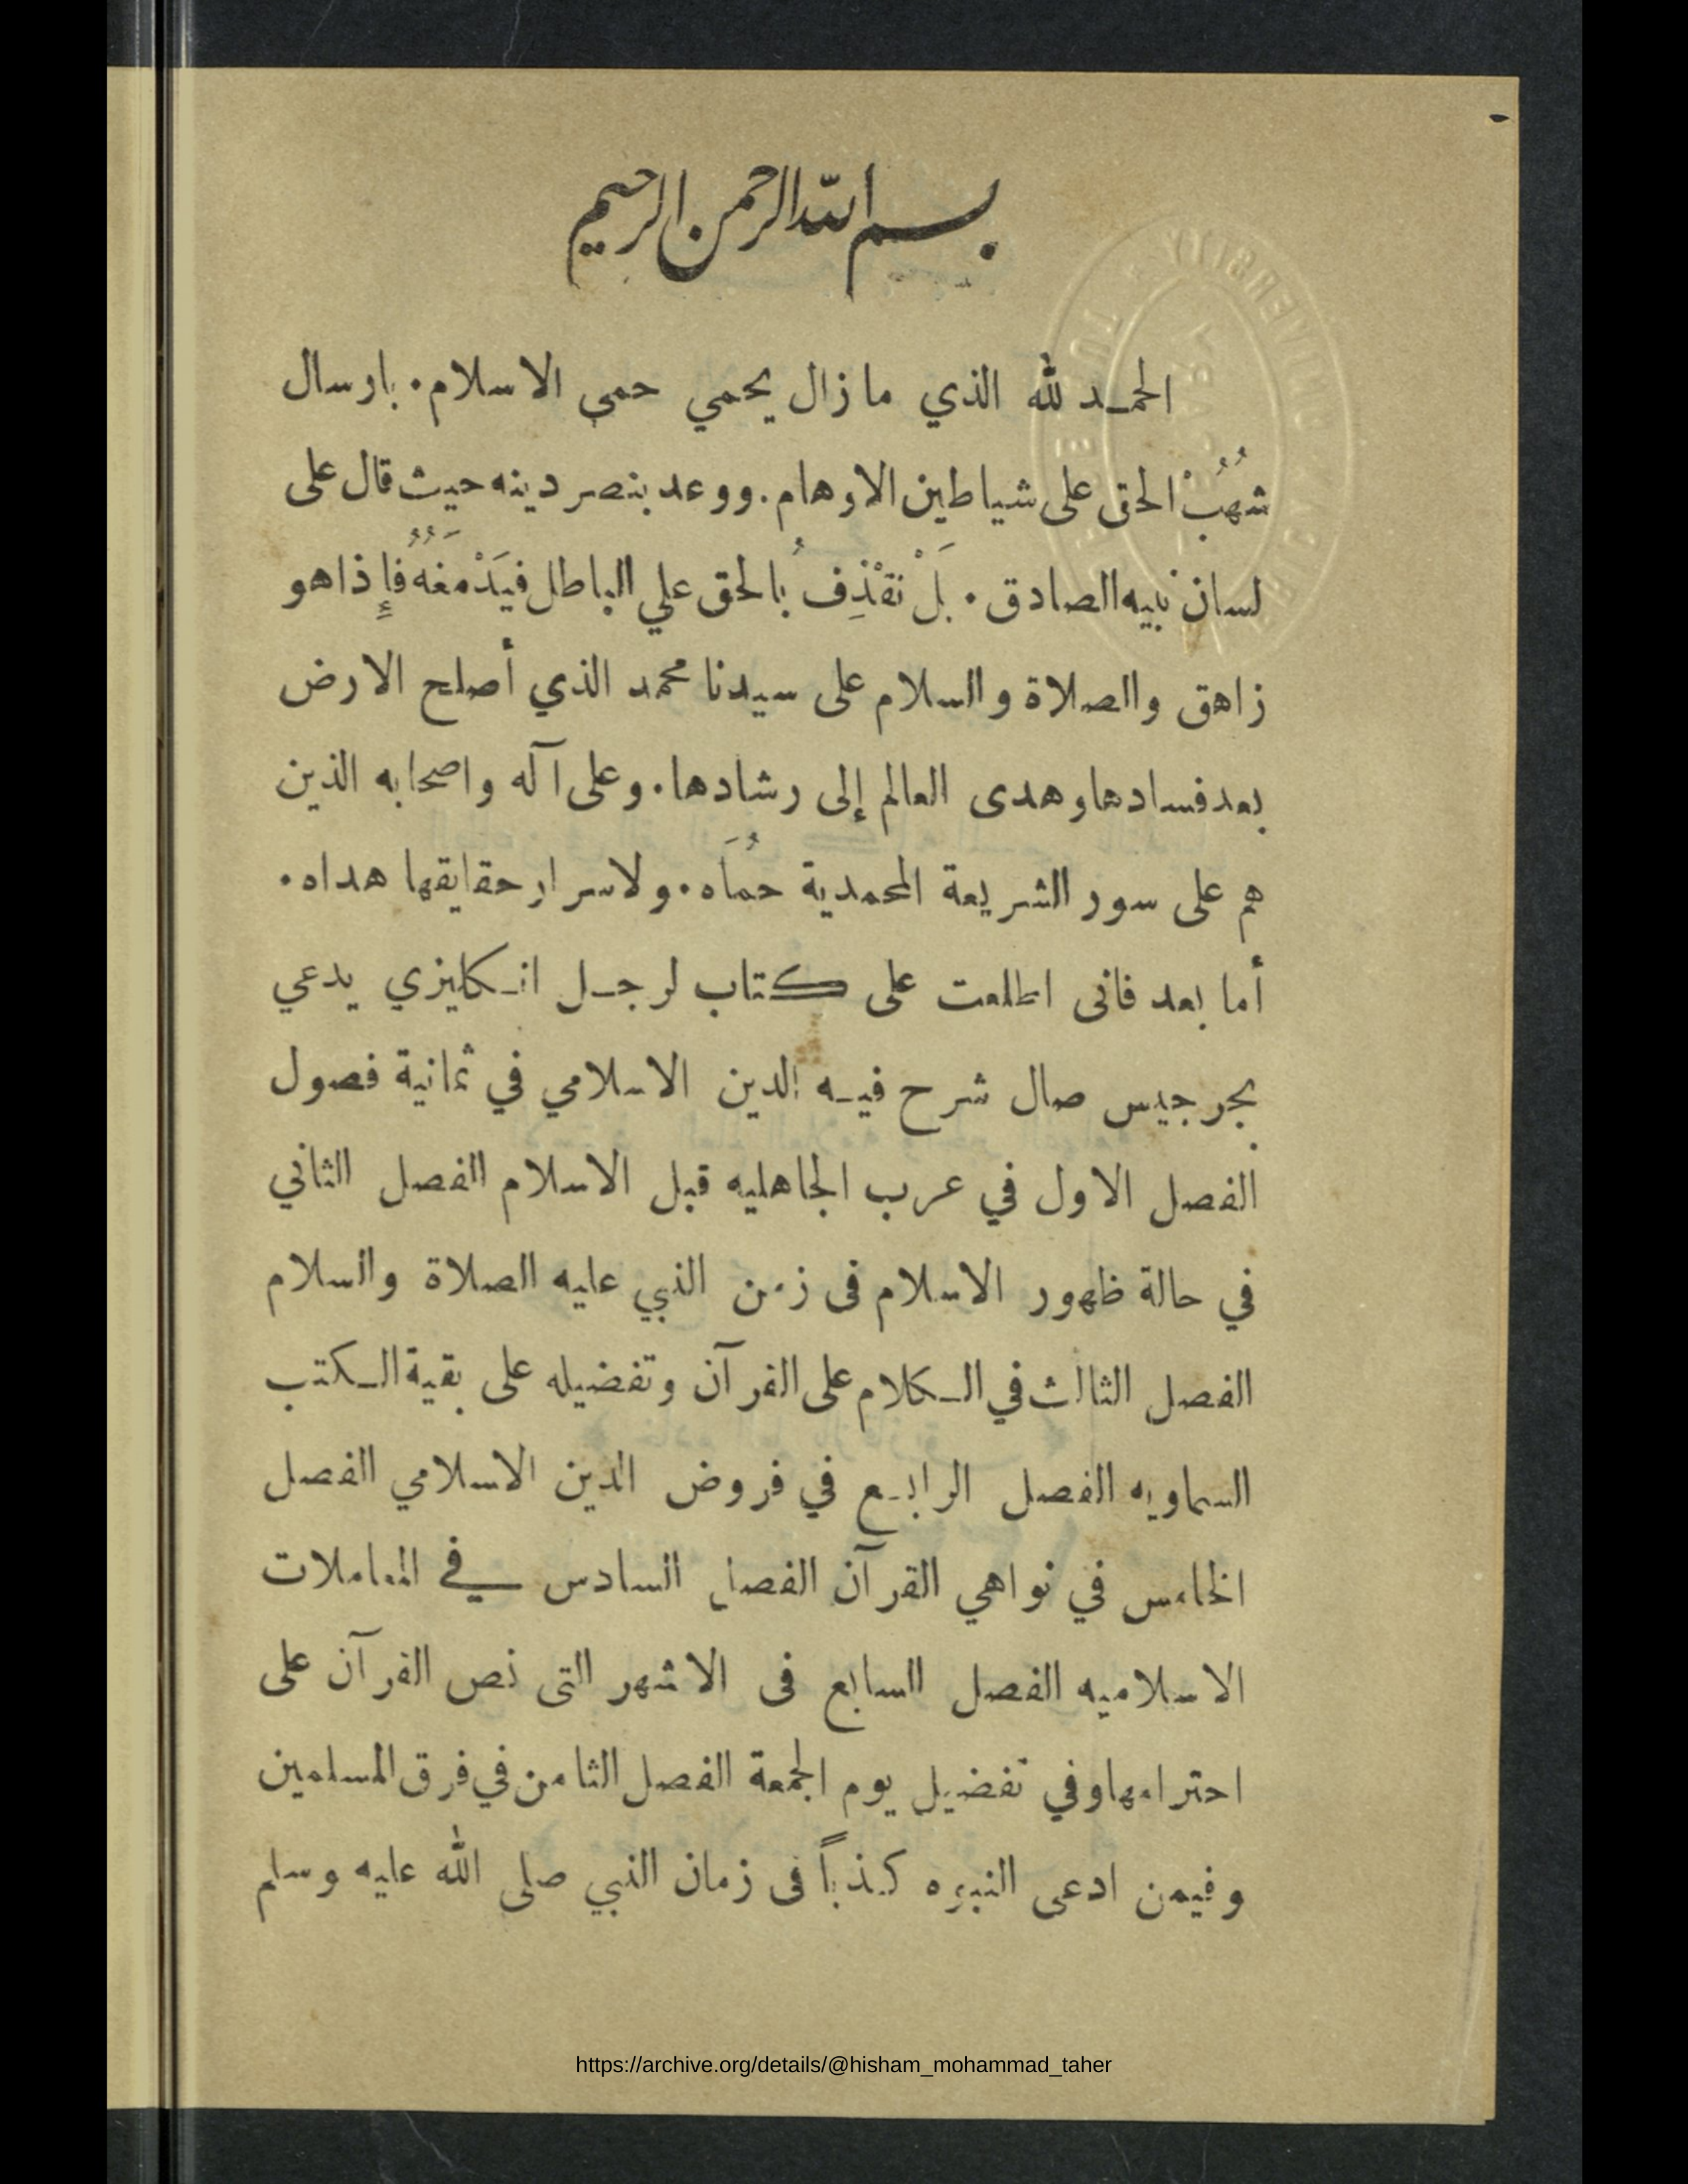 بسم الله الرحمن الرحيم
الحمد لله الذي ما زال يحمي حمى الاسلام. بارسال
شُهُبْ الحق على شياطين الاوهام. ووعد بنصر دينه حيث قال على
لسان نبيه الصادق. بَلْ نَقْذِفُ بالحق علي الباطل فيَدْمَغُهُ فإِذا هو
زاهق والصلاة والسلام على سيدنا محمد الذي أصلح الارض
بعد فسادها وهدى العالم إلى رشادها. وعلى آله واصحابه الذين
هم على سور الشريعة المحمدية حمُاَه. ولاسرار حقايقها هداه.
أما بعد فانى اطلعت على كتاب لرجل انكليزي يدعي
بجرجيس صال شرح فيه الدين الاسلامي في ثمانية فصول
الفصل الاول في عرب الجاهليه قبل الاسلام الفصل الثاني
في حالة ظهور الاسلام فى زمن النبي عليه الصلاة والسلام
الفصل الثالث في الكلام على القرآن وتفضيله على بقية الكتب
السماويه الفصل الرابع في فروض الدين الاسلامي الفصل
الخامس في نواهي القرآن الفصل السادس في المعاملات
الاسلاميه الفصل السابع فى الاشهر التى نص القرآن على
احترامها وفي تفضيل يوم الجمعة الفصل الثامن في فرق المسلمين
وفيمن ادعى النبوه كذباً فى زمان النبي صلى الله عليه وسلم
https://archive.org/details/@hisham_mohammad_taher